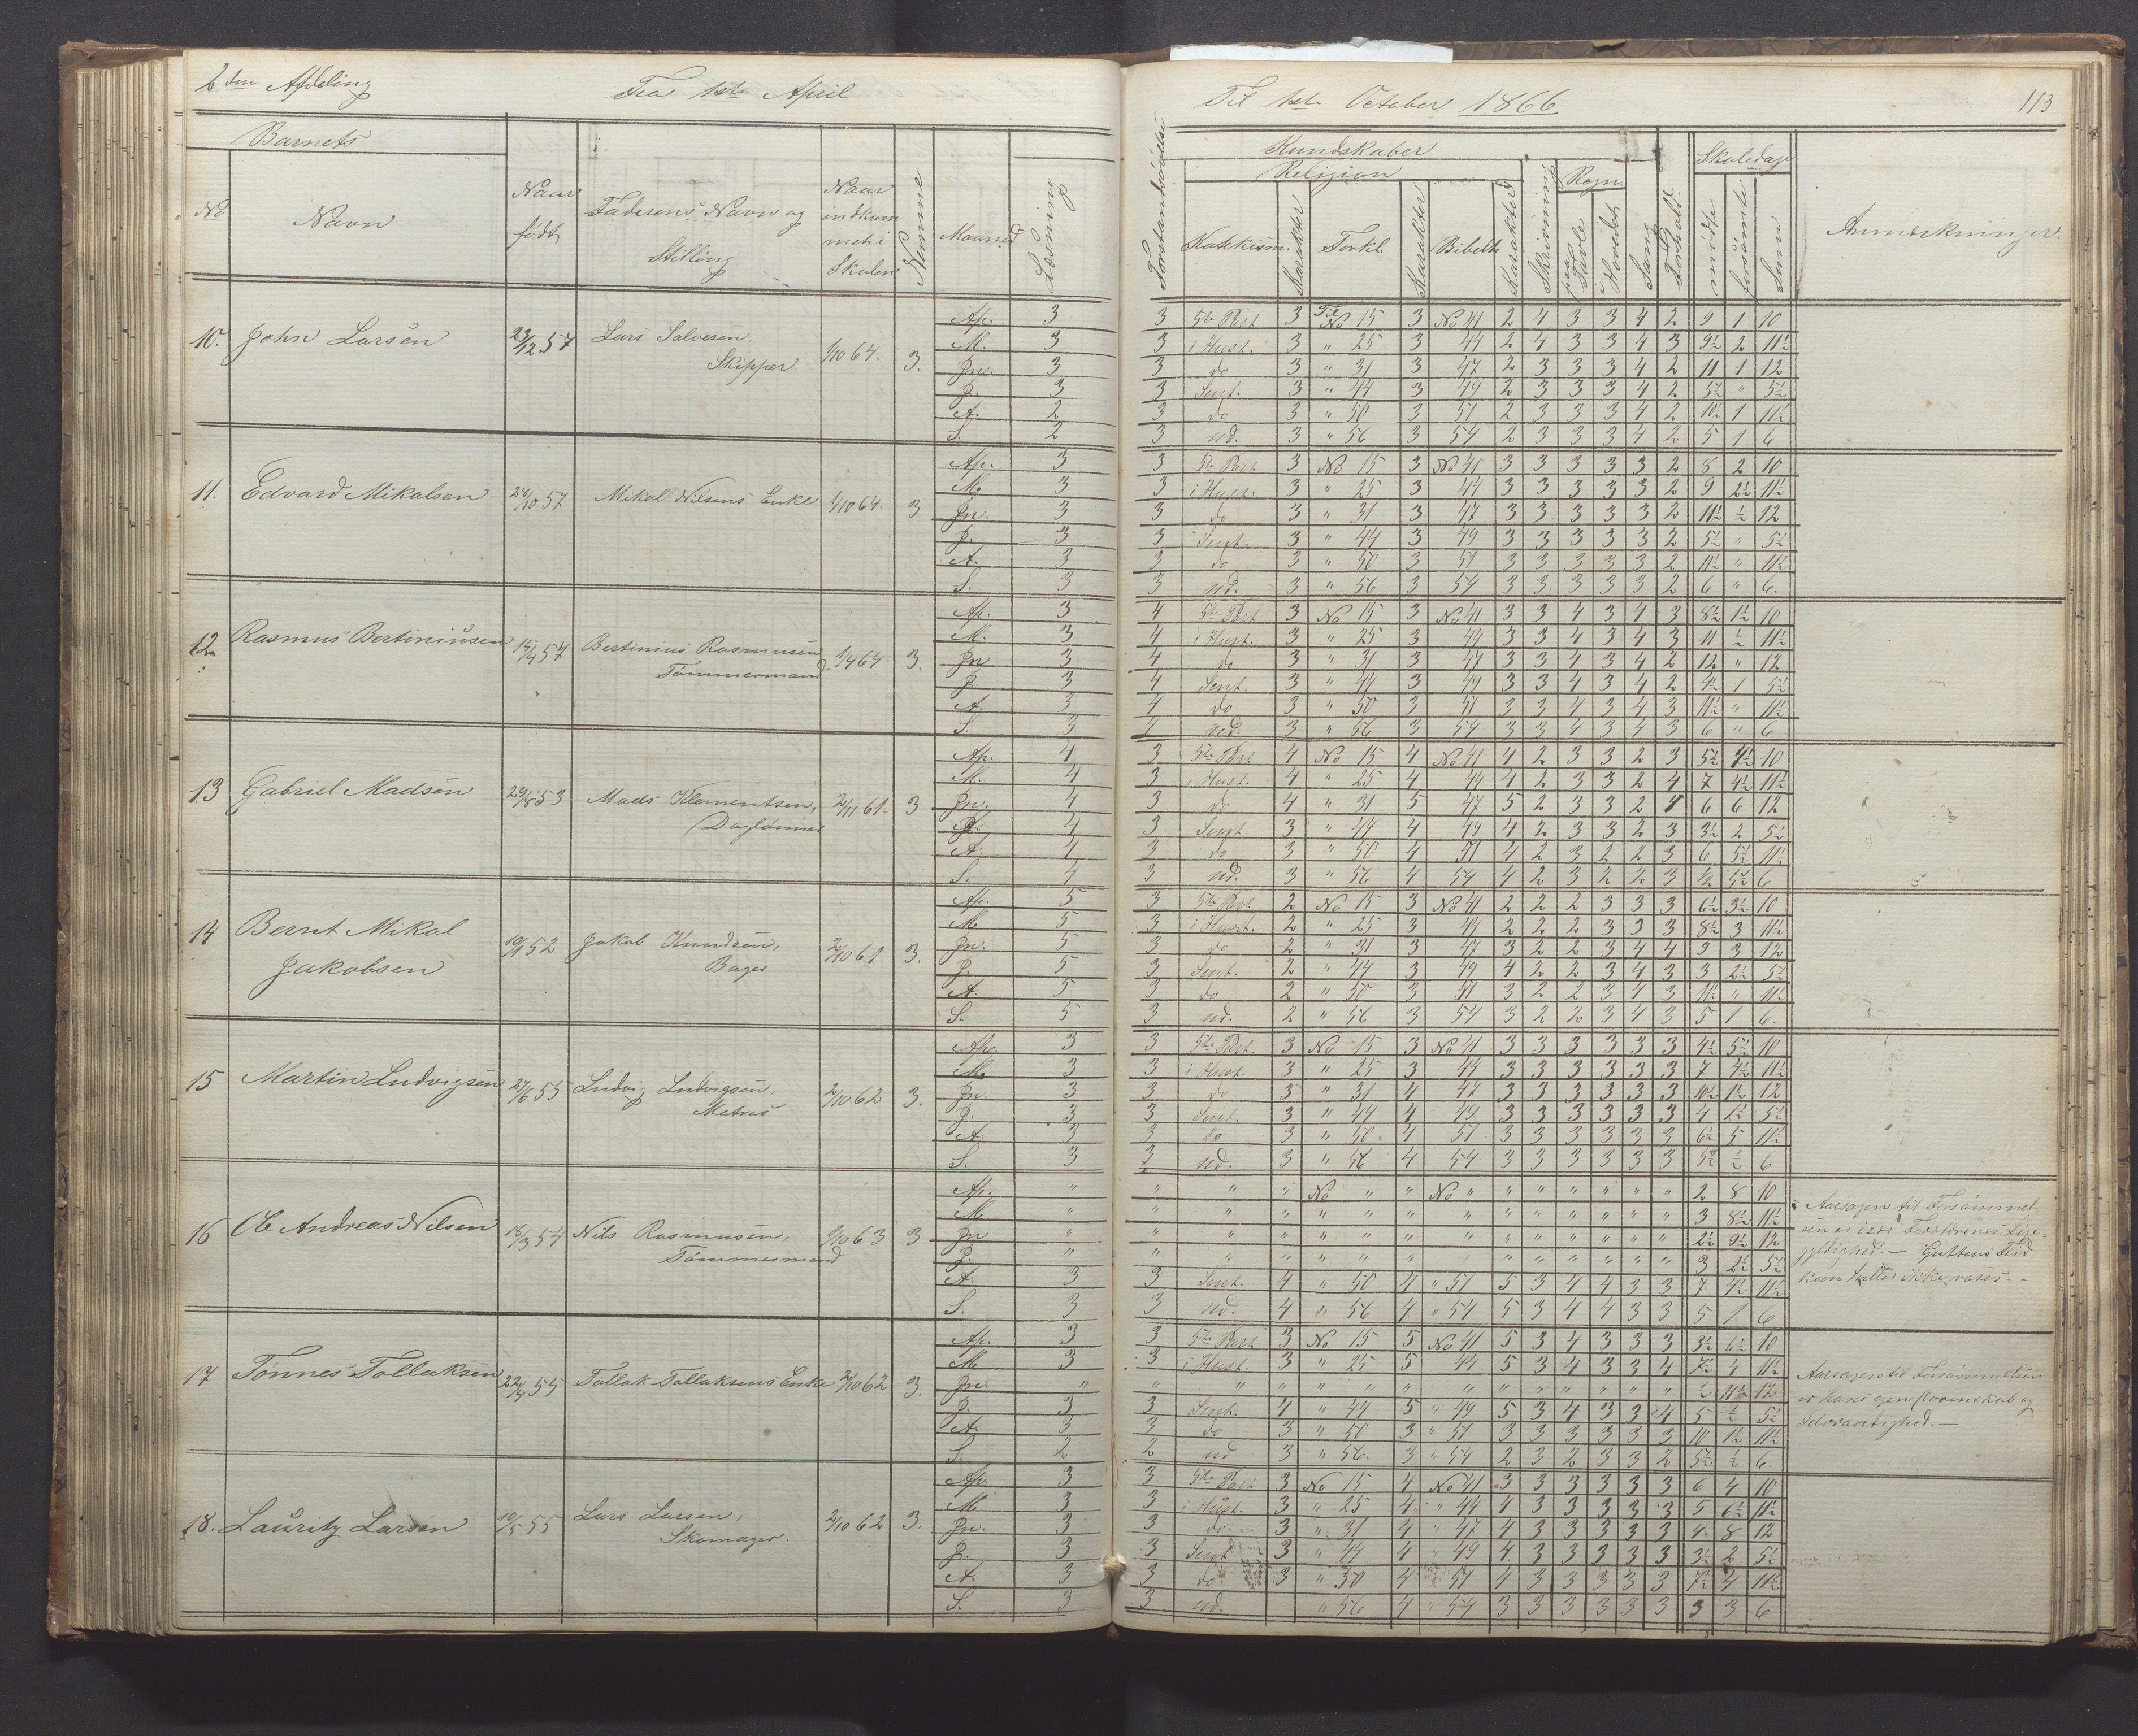 2den Afdeling Fra 1ste April Til 1ste October 1866 113
Barnets Kundskaber Skoledage
Religion Regn.
No Navn Naar født Faderens Navn og Stilling Naar indkommet i Skolen Nemme Maaned Læsning Forstandsøvelse Katekism. Karakter Forkl. Karakter Bibelh. Karakter Skrivning paa Tavle i Hovedet Sang Forhold mødte forsømte Sum Anmærkninger.
10. John Larsen 23/12 57 Lars Salvesen, Skipper. 1/10 64. 3.
Ap. 3 3 5te Part 3 Til No 15 3 No 41 2 4 3 3 4 2 9 1 10
M. 3 3 i Hust. 3 " 25 3 44 2 4 3 3 4 3 9½ 2 11½
Jn. 3 3 do 3 " 31 3 47 2 3 3 3 4 2 11 1 12
J. 3 3 Sent. 3 " 44 3 49 2 3 3 3 4 2 5½ " 5½
A. 2 3 do 3 " 50 3 51 2 3 3 3 4 2 10½ 1 11½
S. 2 3 ud. 3 " 56 3 54 2 3 3 3 4 2 5 1 6
11. Edvard Mikalsen 28/10 57 Mikal Nilsens Enke 1/10 64. 3
Ap. 3 3 5te Part 3 No 15 3 No 41 3 3 3 3 3 2 8 2 10
M. 3 3 i Hust. 3 " 25 3 44 3 3 3 3 3 2 9 2½ 11½
Jn. 3 3 do 3 " 31 3 47 3 3 3 3 3 2 11½ ½ 12
J. 3 3 Sent. 3 " 44 3 49 3 3 3 3 3 2 5½ " 5½
A. 3 3 do 3 " 50 3 51 3 3 3 3 3 2 11½ " 11½
S. 3 3 ud. 3 " 56 3 54 3 3 3 3 3 2 6 " 6.
12. Rasmus Bertiniusen 14/4 57 Bertinius Rasmusen Tømmermand 1/4 64 3.
Ap. 3 4 5te Part 3 No 15 3 No 41 3 3 4 3 4 3 8½ 1½ 10
M. 3 4 i Hust. 3 " 25 3 44 3 3 4 3 4 3 11 ½ 11½
Jn 3 4 do 3 " 31 3 47 3 3 4 3 4 2 12 " 12
J. 3 4 Sent. 3 " 44 3 49 3 3 4 3 4 2 4½ 1 5½
A. 3 4 do 3 " 50 3 51 3 3 4 3 4 3 11½ " 11½
S. 3 4 ud. 3 " 56 3 54 3 3 4 3 4 3 6 " 6
13 Gabriel Madsen 29/8 53 Mads Klementsen, Daglønner 2/11 61. 3
Ap. 4 3 5te Part 4 No 15 4 No 41 4 2 3 3 2 3 5½ 4½ 10
M. 4 3 i Hust. 4 " 25 4 44 4 2 3 3 2 4 7 4½ 11½
Jn. 4 3 do 4 " 31 5 47 5 2 3 3 2 4 6 6 12
J. 4 3 Sent. 3 " 44 4 49 4 2 3 3 2 3 3½ 2 5½
A. 4 3 do 3 " 50 4 51 4 2 3 2 2 3 6 5½ 11½
S. 4 3 ud. 3 " 56 4 54 4 2 3 2 2 3 ½ 5½ 6
14 Bernt Mikal Jakobsen 10/1 52 Jakob Knudsen, Bager 2/10 61 3.
Ap. 5 3 5te Part 2 No 15 3 No 41 2 2 2 3 3 3 6½ 3½ 10
M. 5 3 i Hust. 2 " 25 3 44 2 2 2 3 3 3 8½ 3 11½
Jn. 5 3 do 2 " 31 3 47 3 2 2 3 4 4 9 3 12
J. 5 3 Sent. 2 " 44 3 49 4 2 2 3 4 3 3 2½ 5½
A. 5 3 do 2 " 50 3 51 3 2 2 3 4 3 11½ " 11½
S. 5 3 ud. 2 " 56 3 54 3 2 2 3 4 3 5 1 6.
15 Martin Ludvigsen 27/6 55 Ludvig Ludvigsen, Matros 2/10 62 3.
Ap. 3 3 5te Part. 3 No 15 3 No 41 3 3 3 3 3 3 4½ 5½ 10
M. 3 3 i Hust. 3 " 25 3 44 3 3 3 3 3 3 7 4½ 11½
Jn. 3 3 do 3 " 31 4 47 3 3 3 3 3 3 10½ 1½ 12
J. 3 3 Sent. 3 " 44 4 49 3 3 3 3 3 3 4 1½ 5½
A. 3 3 do 3 " 50 4 51 3 3 3 3 3 3 6½ 5 11½
S. 3 3 ud. 3 " 56 4 54 3 3 3 3 3 3 5½ ½ 6
16 Ole Andreas Nilsen 16/3 54 Nils Rasmusen, Tømmermand 1/10 63 3.
Ap. " " " " No " " No " " " " " " " 2 8 10 Aarsagen til Forsømmel-
M " " " " " " " " " " " " " " 3 8½ 11½ sen er især Forældrenes Lige-
Jn " " " " " " " " " " " " " " 2½ 9½ 12 gyldighed. — Guttens Flid
J. " " " " " " " " " " " " " 3 2½ 5½ kan heller ikke roses. —
A. 3 3 Sent. 4 " 50 4 " 51 5 3 4 4 3 3 7 4½ 11½
S. 3 3 ud. 4 " 56 4 " 54 5 3 4 4 3 3 5 1 6
17 Tønnes Tollaksen 22/4 54 Tollak Tollaksens Enke 2/10 62 3.
Ap. 3 3 5te Part 3 No 15 5 No 41 5 3 4 3 3 3 3½ 6½ 10
M 3 3 i Hust. 3 " 25 5 44 5 3 4 3 3 4 7½ 4 11½ Aarsagen til Forsømmelsen
Jn. " " " " " " " " " " " " " " ½ 11½ 12 er hans egen
J. 3 3 Sent. 4 " 44 5 " 49 5 3 4 3 3 4 5 ½ 5½
A. 3 3 do 3 " 50 3 " 51 3 3 3 3 3 3 10 1½ 11½
S. 2 2 ud 3 " 56. 3 " 54 2 3 2 3 3 2 5½ ½ 6.
18. Lauritz Larsen 10/5 55 Lars Larsen, Skomager. 2/10 62 3.
Ap. 3 3 5te Part 3 No 15 4 No 41 3 3 3 3 3 3 6 4 10
M. 3 3 i Hust. 3 " 25 4 " 44 4 3 3 3 3 3 5 6½ 11½
Jn. 3 3 do 3 " 31 4 " 47 4 3 3 3 3 3 4 8 12
J. 3 3 Sent 3 " 44 4 " 49 4 3 3 3 3 3 3½ 2 5½
A. 3 3 do 3 " 50 4 " 51 4 3 3 3 3 3 7½ 4 11½
S. 3 3 ud. " 56 4 " 54 3 3 3 3 3 3 3 3 6